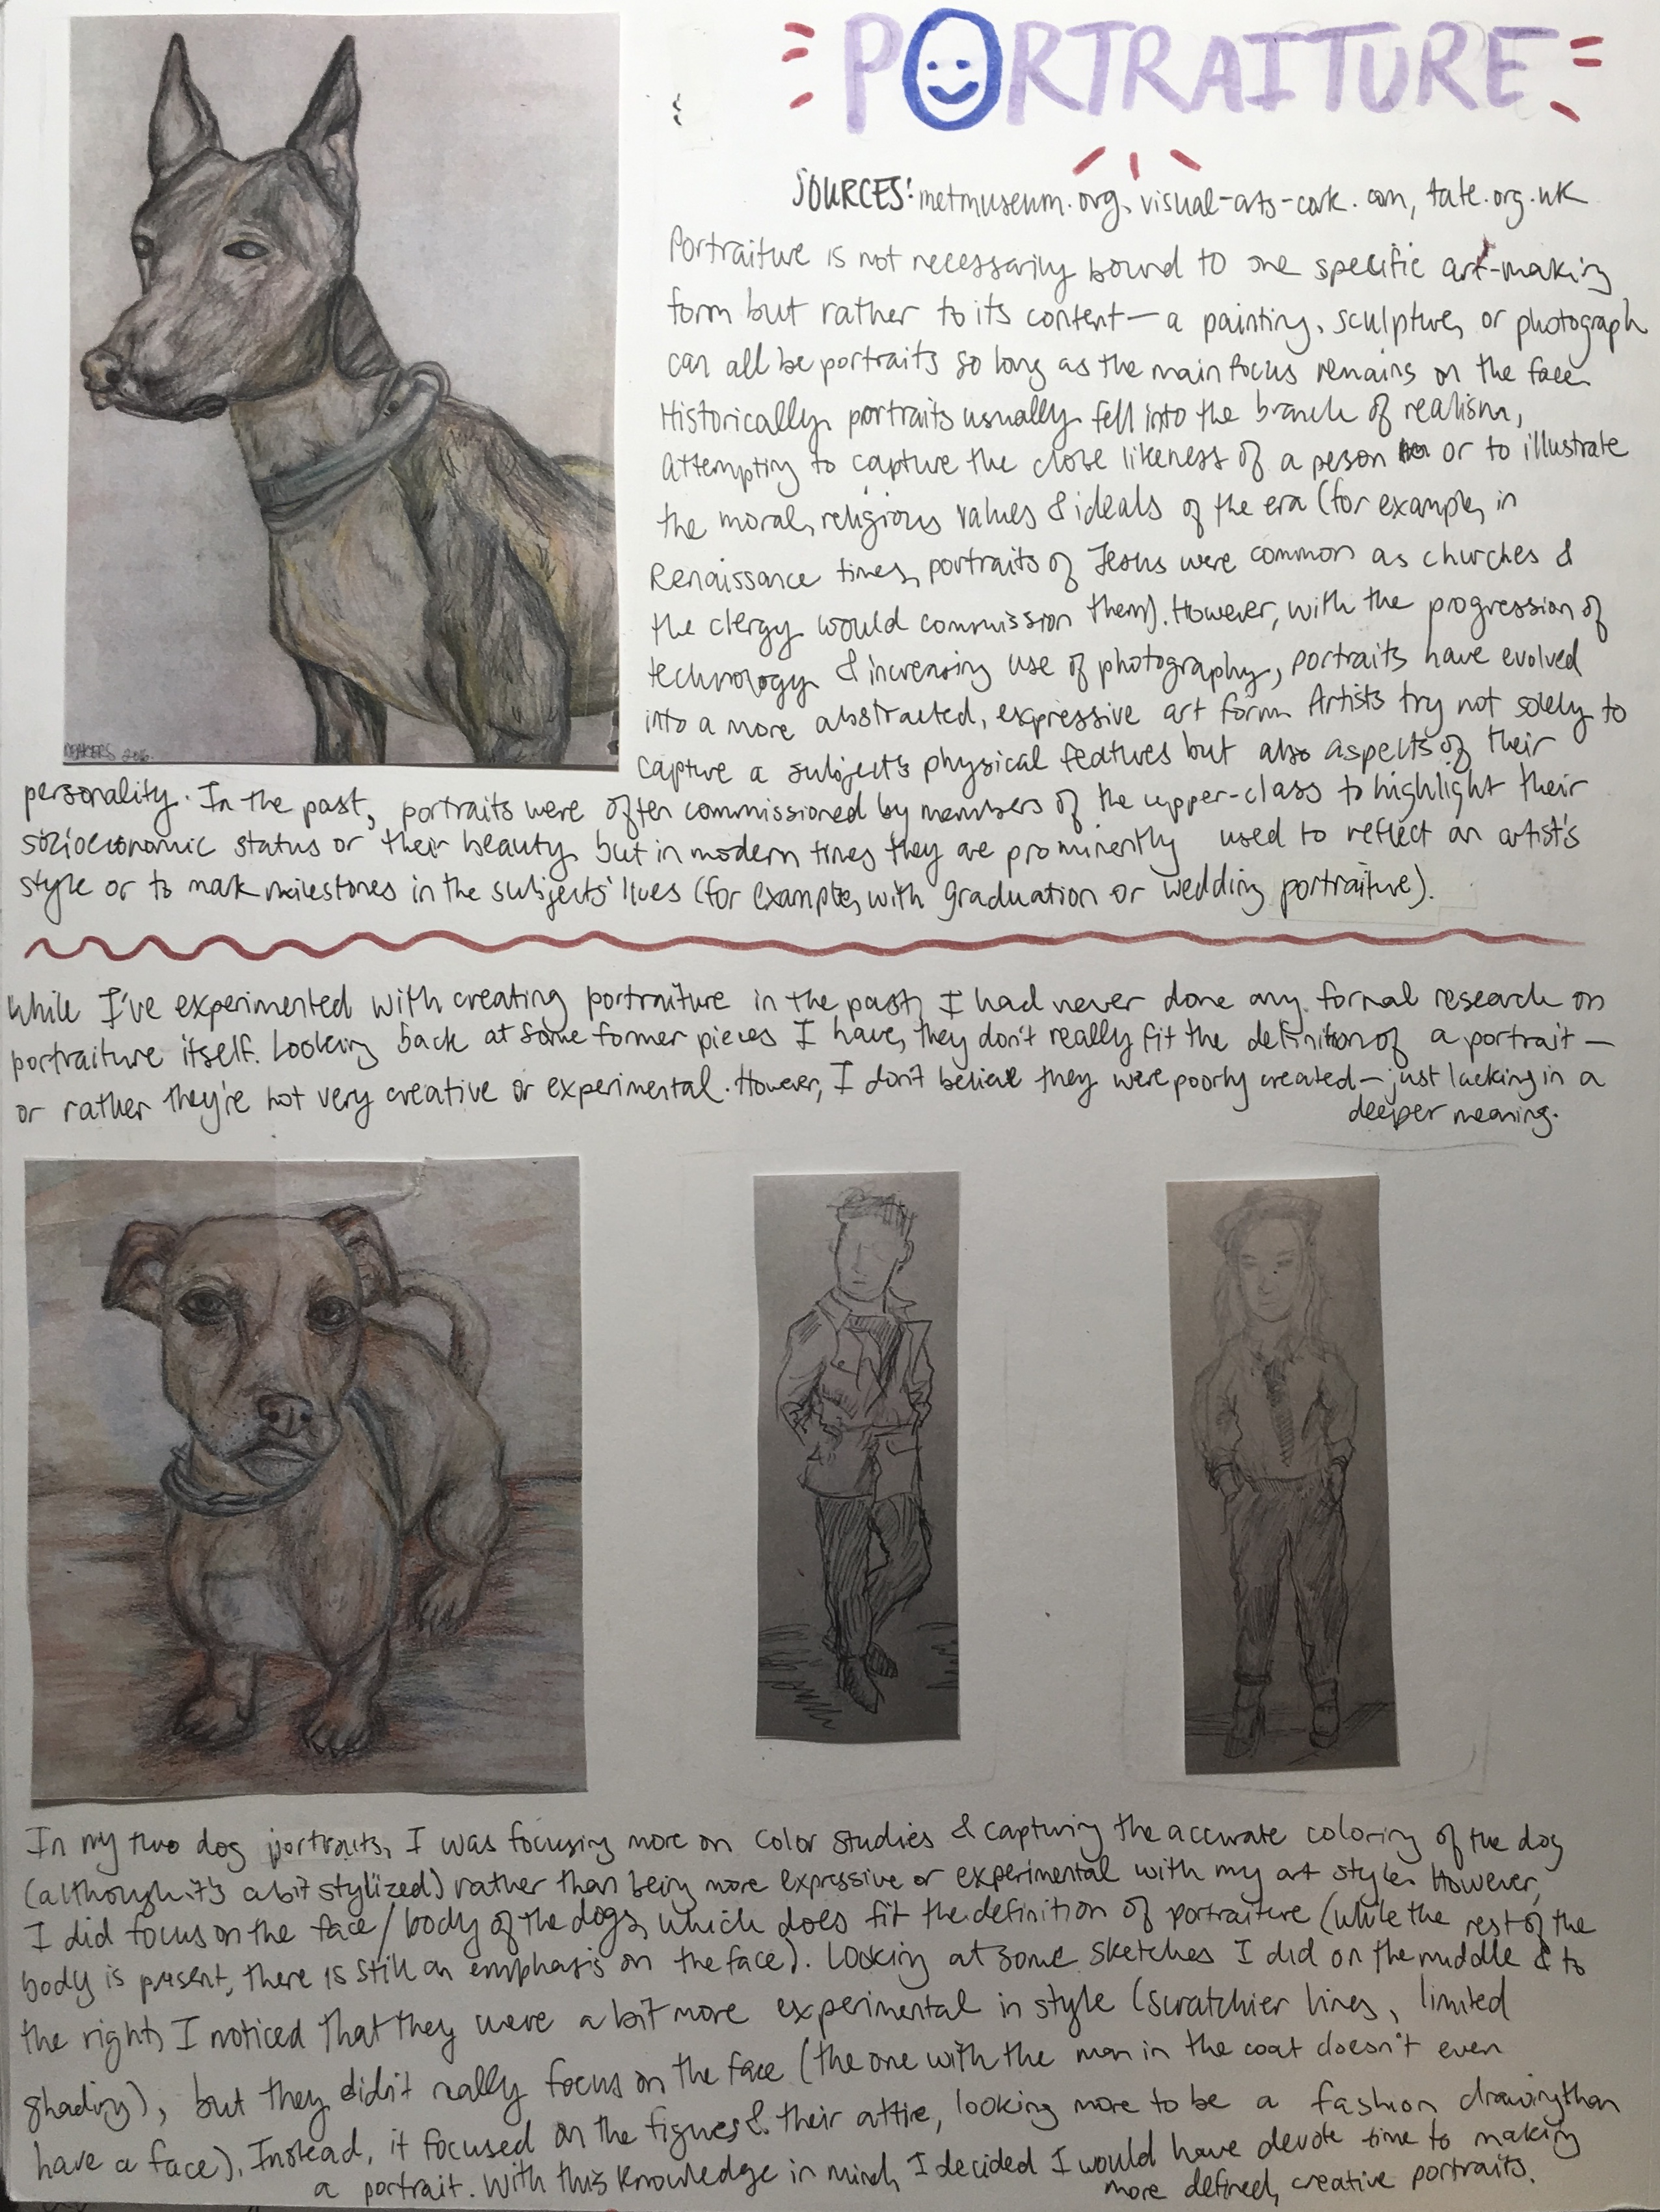 PORTRAITURE
SOURCES: metmuseum.org, visual-arts-cork.com, tate.org.uk
Portraiture is not necessarily bound to one specific art-making
form but rather to its content — a painting, sculpture, or photograph
can all be portraits so long as the main focus remains on the face.
Historically, portraits usually fell into the branch of realism,
attempting to capture the close likeness of a person or to illustrate
the moral, religious values & ideals of the era (for example, in
Renaissance times, portraits of Jesus were common as churches &
the clergy would commission them). However, with the progression of
technology & increasing use of photography, portraits have evolved
into a more abstracted, expressive art form. Artists try not solely to
capture a subject's physical features but also aspects of their
personality. In the past, portraits were often commissioned by members of the upper-class to highlight their
socioeconomic status or their beauty, but in modern times they are prominently used to reflect an artist's
style or to mark milestones in the subjects' lives (for example, with graduation or wedding portraiture).
While I've experimented with creating portraiture in the past, I had never done any formal research on
portraiture itself. Looking back at some former pieces I have, they don't really fit the definition of a portrait —
or rather they're not very creative or experimental. However, I don't believe they were poorly created — just lacking in a
deeper meaning.
In my two dog portraits, I was focusing more on color studies & capturing the accurate coloring of the dog
(although it's a bit stylized) rather than being more expressive or experimental with my art style. However,
I did focus on the face/body of the dogs, which does fit the definition of portraiture (while the rest of the
body is present, there is still an emphasis on the face). Looking at some sketches I did on the middle & to
the right, I noticed that they were a bit more experimental in style (scratchier lines, limited
shading), but they didn't really focus on the face (the one with the man in the coat doesn't even
have a face). Instead, it focused on the figures & their attire, looking more to be a fashion drawing than
a portrait. With this knowledge in mind, I decided I would have devote time to making
more defined, creative portraits.